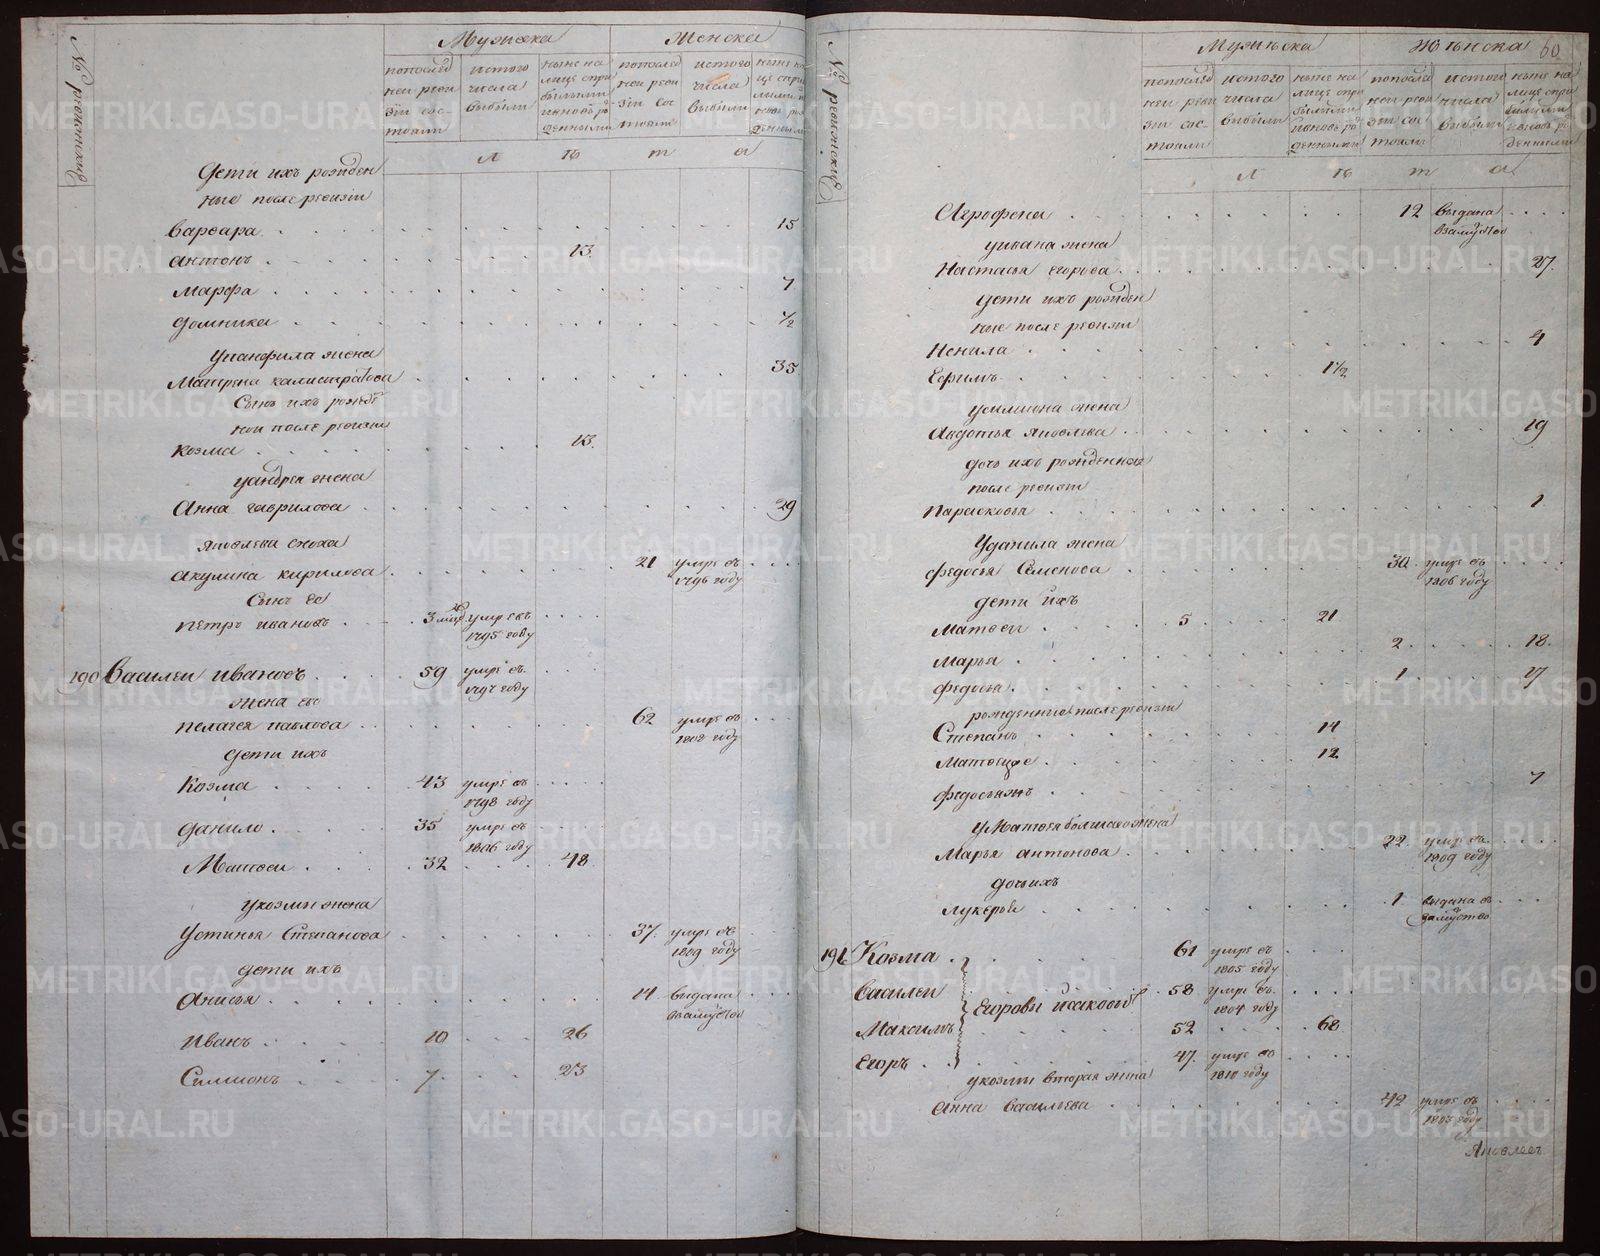 № ревижский
Мужеска
Женска
попослед
ней реви
зїи сос-
тояли
изтого
числа
выбыли
ныне на
лице
попослед
ней реви
зїи сос
тояли
изтого
числа
выбыли
Л Ѣ т а
Дети ихъ рожден
ные после ревизїи
Варвара 15
Антонъ 13.
Марфа 7
Домника 1/2
уПанфила жена
Матрена Калистратова 35
Сынъ ихъ
ной после ревизїи
Козма 13.
уАндрея жена
Анна Гаврилова 29
Яковлева сноха
Акулина Кирилова 21 умре въ
1796 году
Сынъ ее
Петръ Ивановъ 3 умре въ
1795 году
190 Василеи Ивановъ 59 умре въ
1797 году
жена ево
Пелагея Павлова 62 умре въ
1802 году
Дети ихъ
Козма 43 умре въ
1798 году
Данило 35 умре въ
1806 году
Матвеи 32 48
уКозмы жена
Устинья Степанова 37. умре въ
1809 году
Дети ихъ
Анисья 14 выдана
взамужство
Иванъ 10 26
Симионъ 7 23
№ ревижский
Мужеска
Женска
60
попослед
ней реви
зїи сос-
тояли
изтого
числа
выбыли
ныне на
лице
попослед
ней реви
зїи сос
тояли
изтого
числа
выбыли
ныне на
лице
Л Ѣ т а
Агрофена 12 выдана
взамужство
уИвана жена
Настасья Егорова 27
Дети ихъ рожден
ные после ревизїи
Ненила 4
Ефимъ 1 1/2
уСимиона жена
Авдотья Яковлева 19
дочь ихъ рожденная
после ревизїи
Парасковья 1
уДанила жена
Федосья Семенова 30 умре въ
1806 году
Дети ихъ
Матвеи 5 21
Марья 2 18.
Федосья 1 17
рожденные после ревизїи
Степанъ 14
Матвей же 12
Федосья жъ 7
уМатвея большаго жена
Марья Антонова 22 умре въ
1809 году
дочь ихъ
Лукерья 1 выдана въ
замужство
191 Козма 61 умре въ
1805 году
Василеи 58 умре въ
1807 году
Егоровы Исаковы
Максимъ 52 68
Егоръ 47. умре въ
1810 году
уКозмы вторая жена
Анна Васильева 42 умре въ
Яковлевъ
METRIKI.GASO-URAL.RU